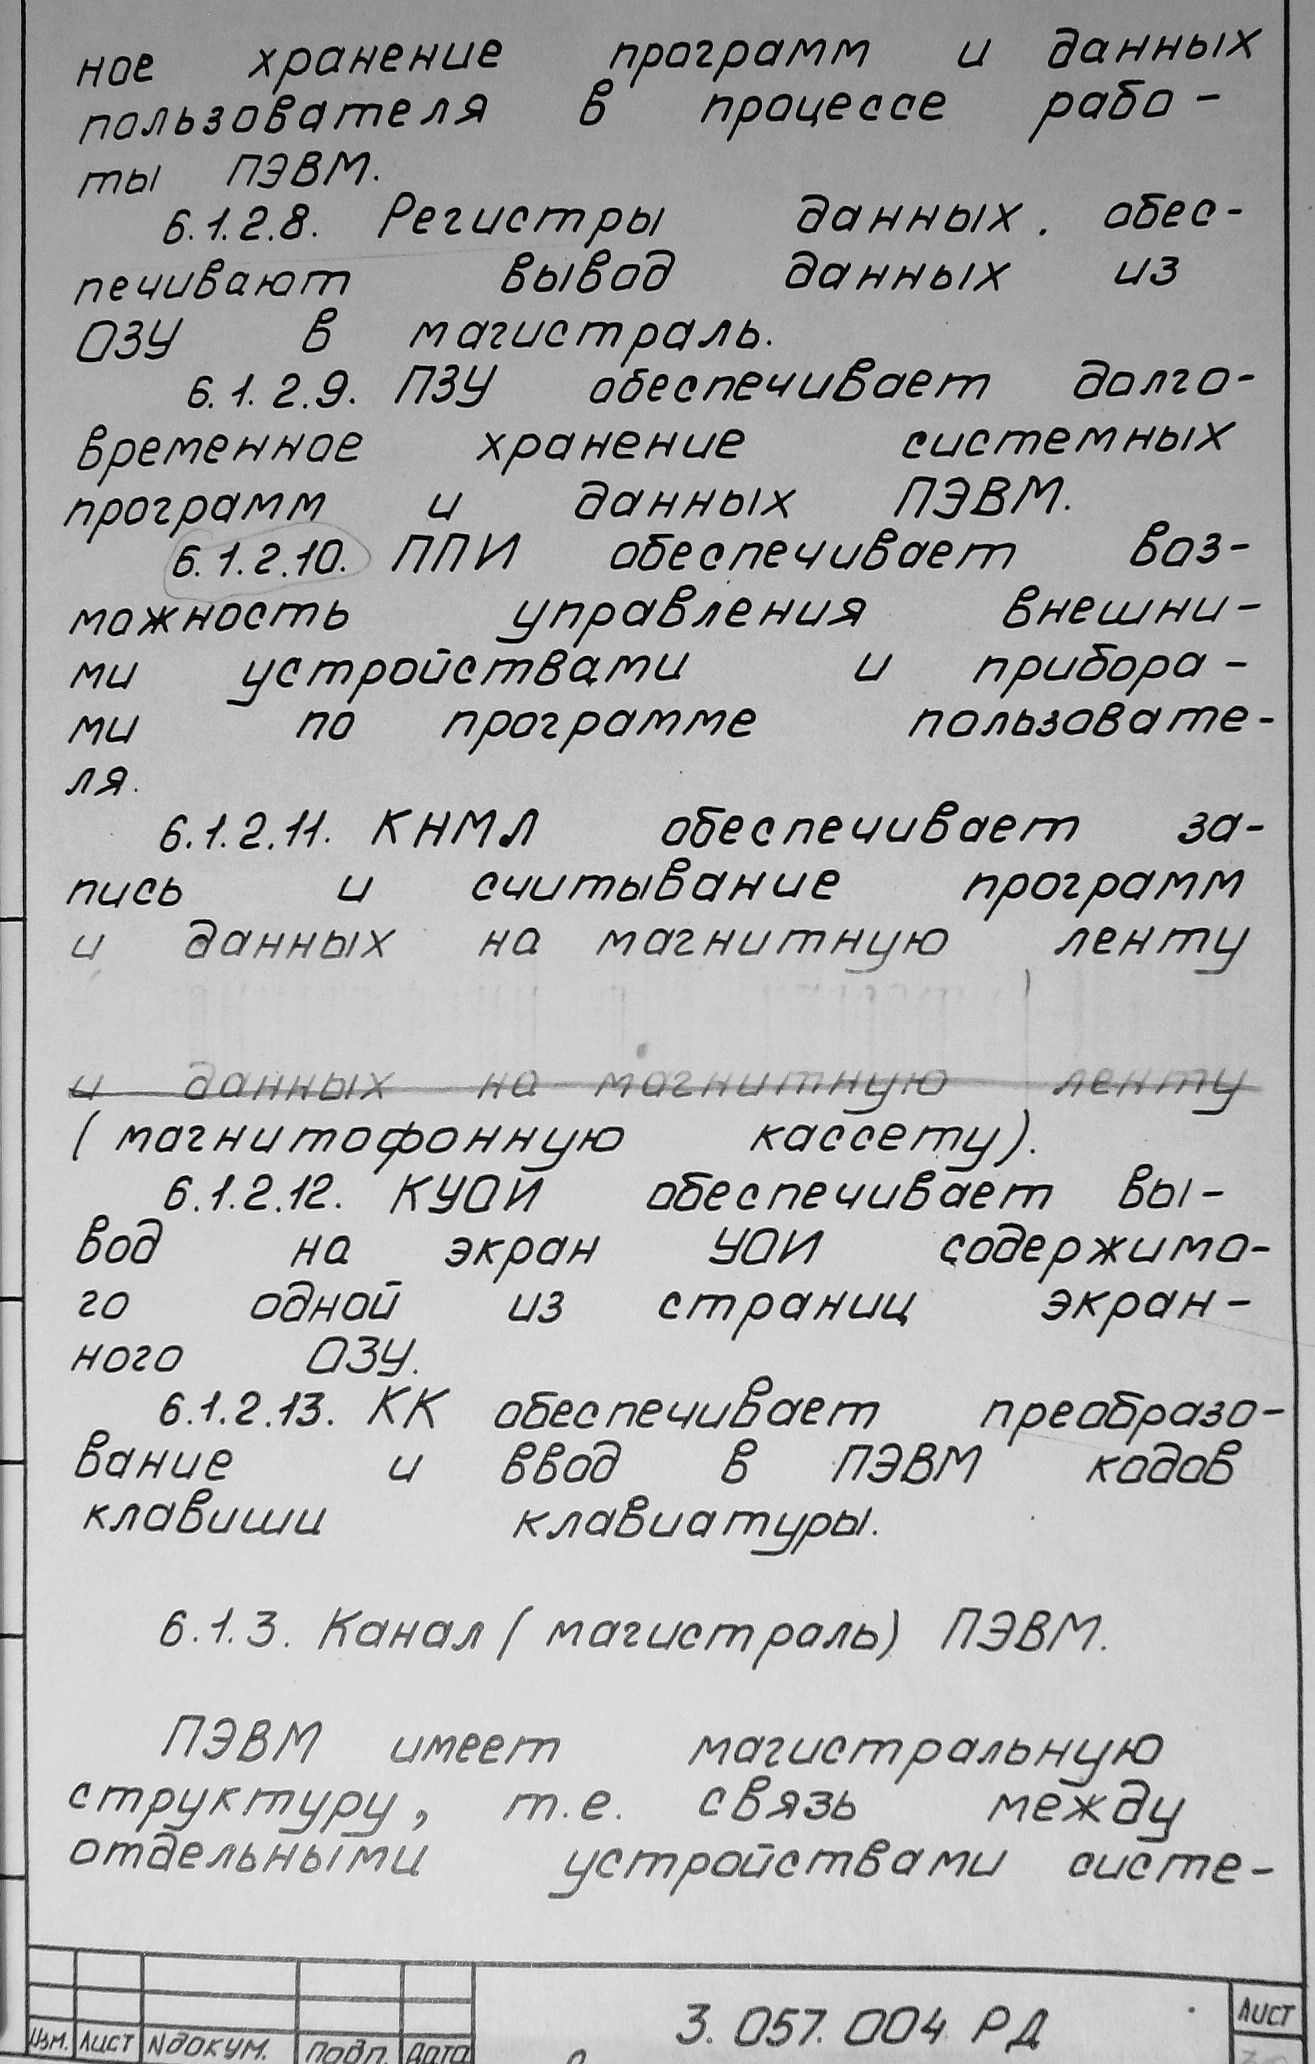 ное хранение программ и данных
пользователя в процессе рабо-
ты ПЭВМ.
6.1.2.8. Регистры данных. обес-
печивают вывод данных из
ОЗУ в магистраль.
6.1.2.9. ПЗУ обеспечивает долго-
временное хранение системных
программ и данных ПЭВМ.
6.1.2.10. ППИ обеспечивает воз-
можность управления внешни-
ми устройствами и прибора-
ми по программе пользовате-
ля.
6.1.2.11. КНМЛ обеспечивает за-
пись и считывание программ
и данных на магнитную ленту
и данных на магнитную ленту
(магнитофонную кассету).
6.1.2.12. КУОИ обеспечивает вы-
вод на экран УОИ содержимо-
го одной из страниц экран-
ного ОЗУ.
6.1.2.13. КК обеспечивает преобразо-
вание и ввод в ПЭВМ кодов
клавиши клавиатуры.
6.1.3. Канал (магистраль) ПЭВМ.
ПЭВМ имеет магистральную
структуру, т.е. связь между
отдельными устройствами систе-
3.057.004 РД
Лист
Изм. Лист №докум. Подп. Дата